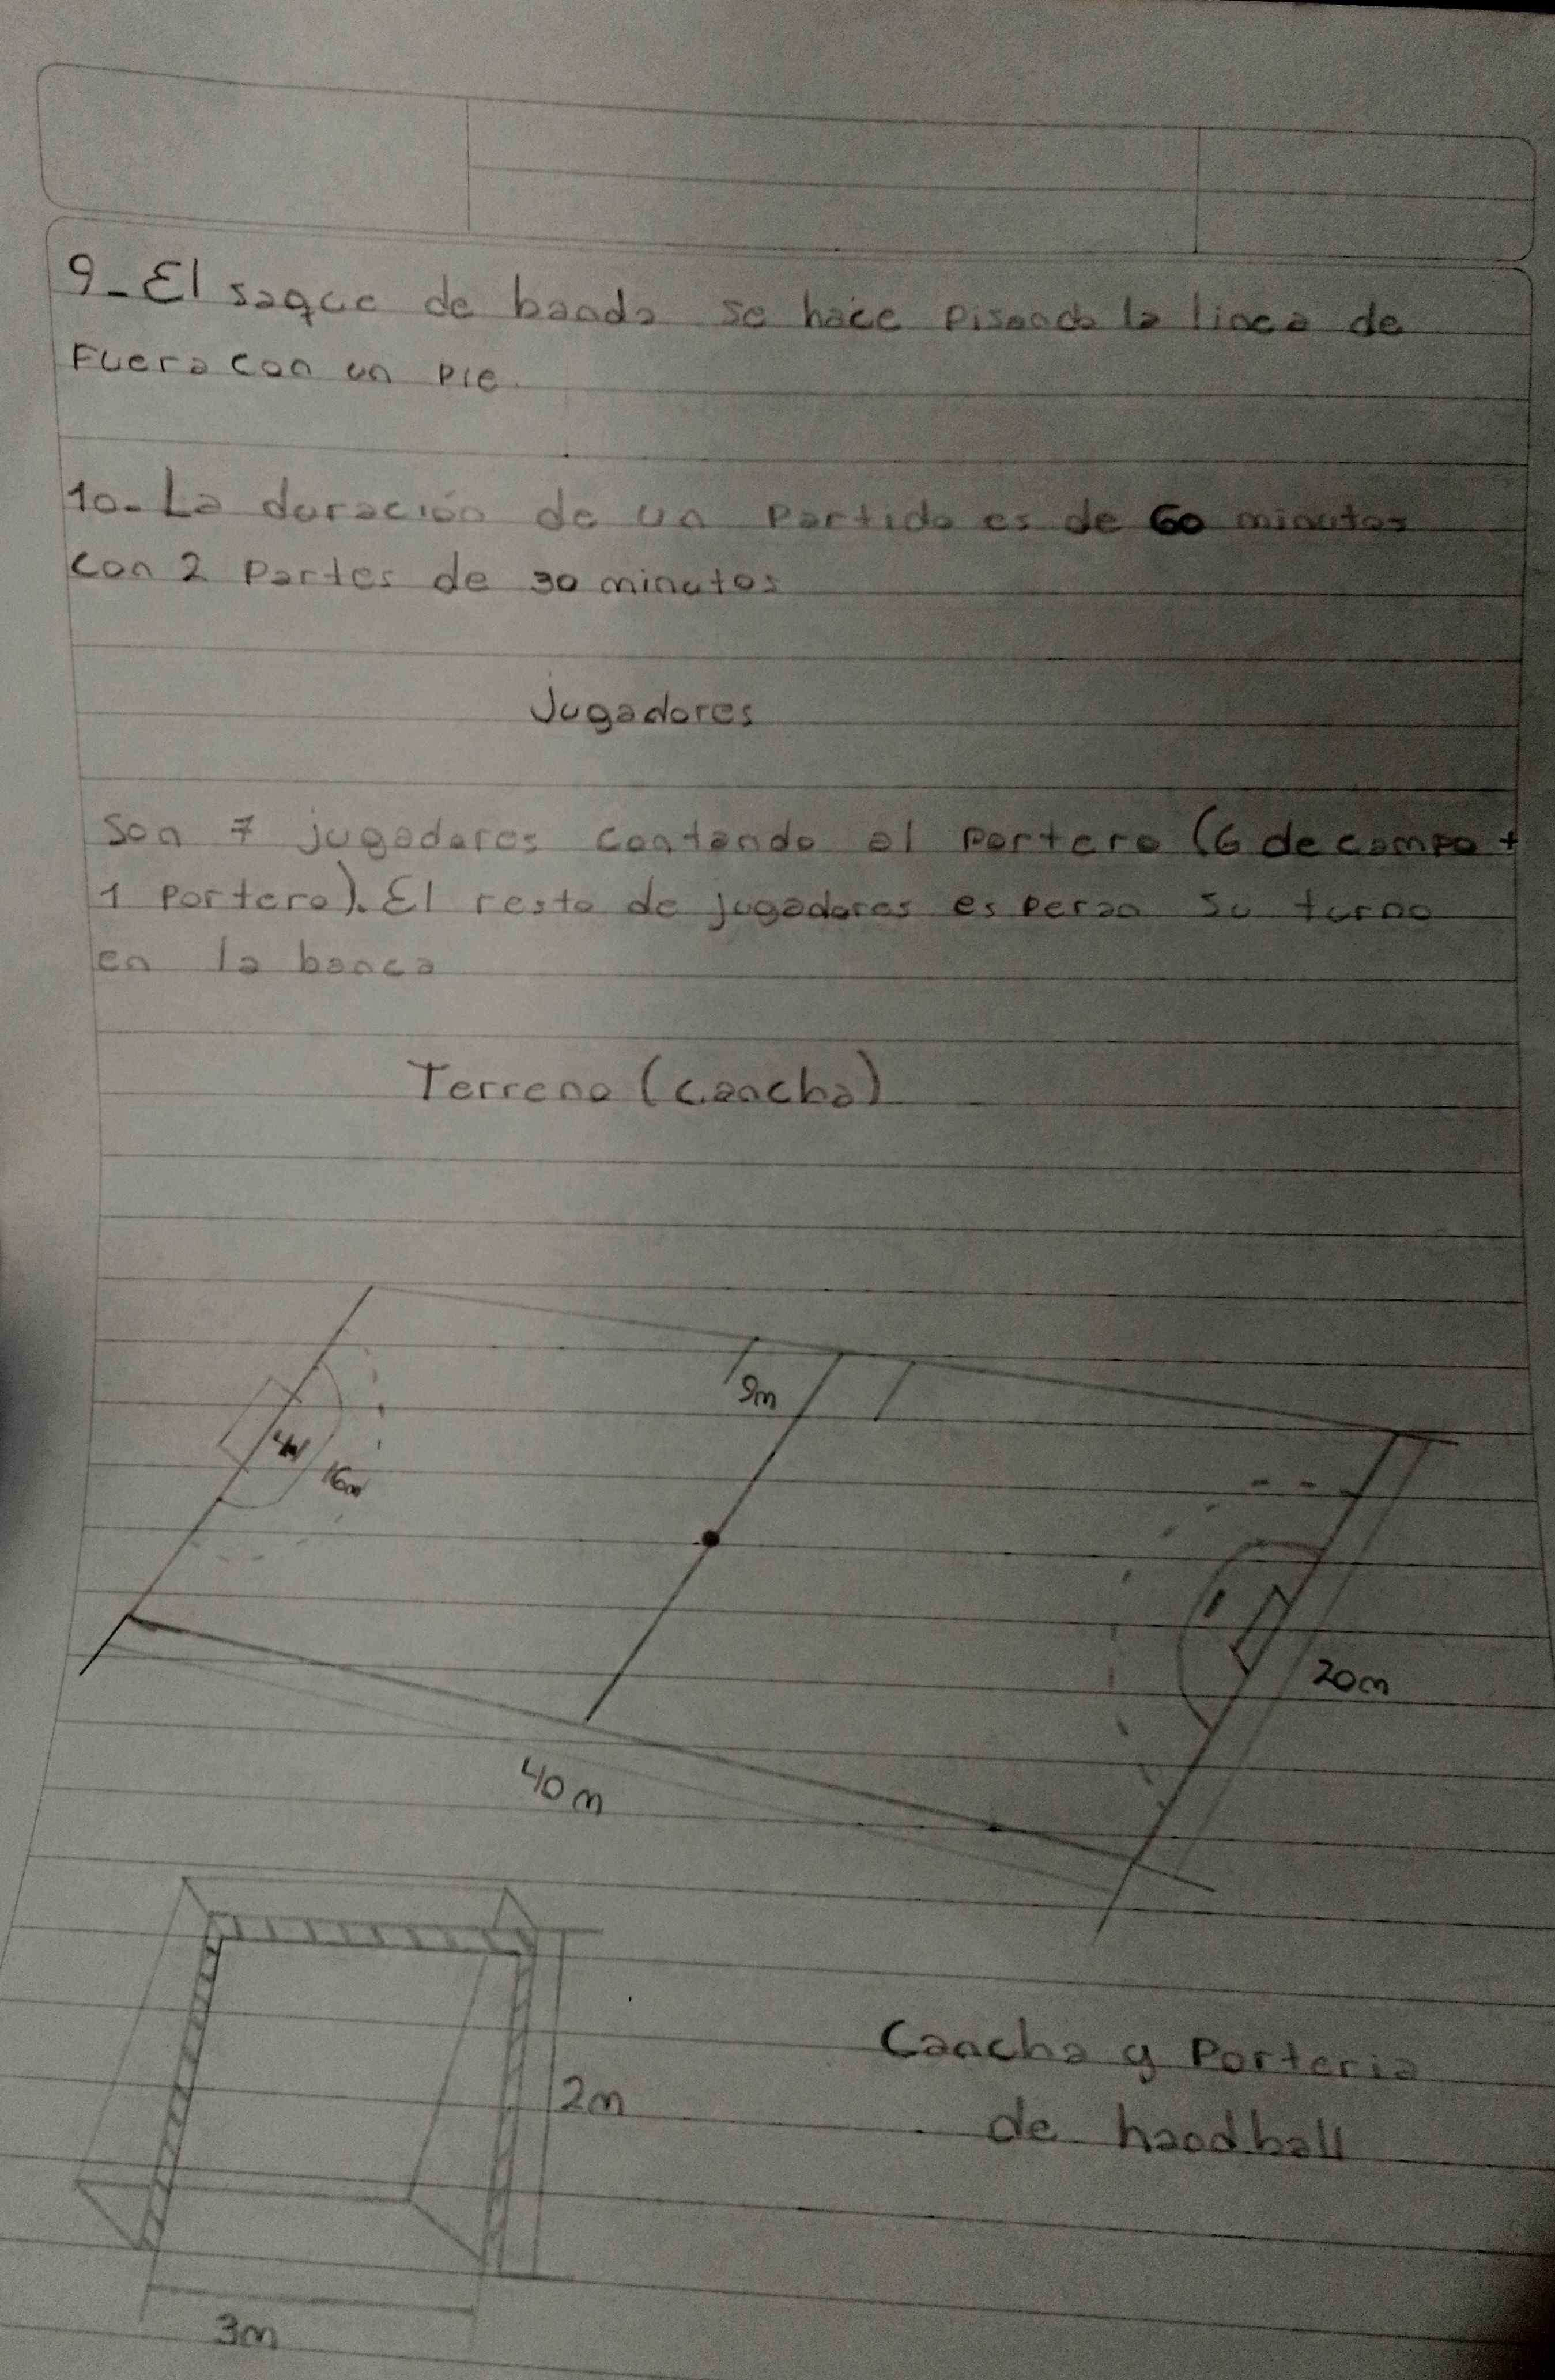 9- El saque de banda se hace pisando la linea de
Fuera con un pie.
10- La duración de un Partido es de 60 minutos
con 2 Partes de 30 minutos
Jugadores
Son 7 jugadores contando al portero (6 de campo +
1 portero). El resto de jugadores esperan su turno
en la banca
Terreno (cancha)
9m
4m
16m
20m
40m
2m
Cancha y Porteria
de handball
3m